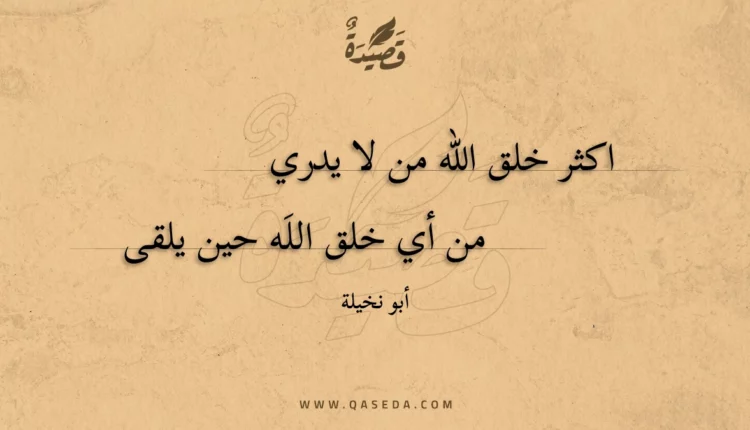 قَصِيْدَةٌ
اكثر خلق الله من لا يدري
من أي خلق اللَه حين يلقى
أبو نخيلة
WWW.QASEDA.COM